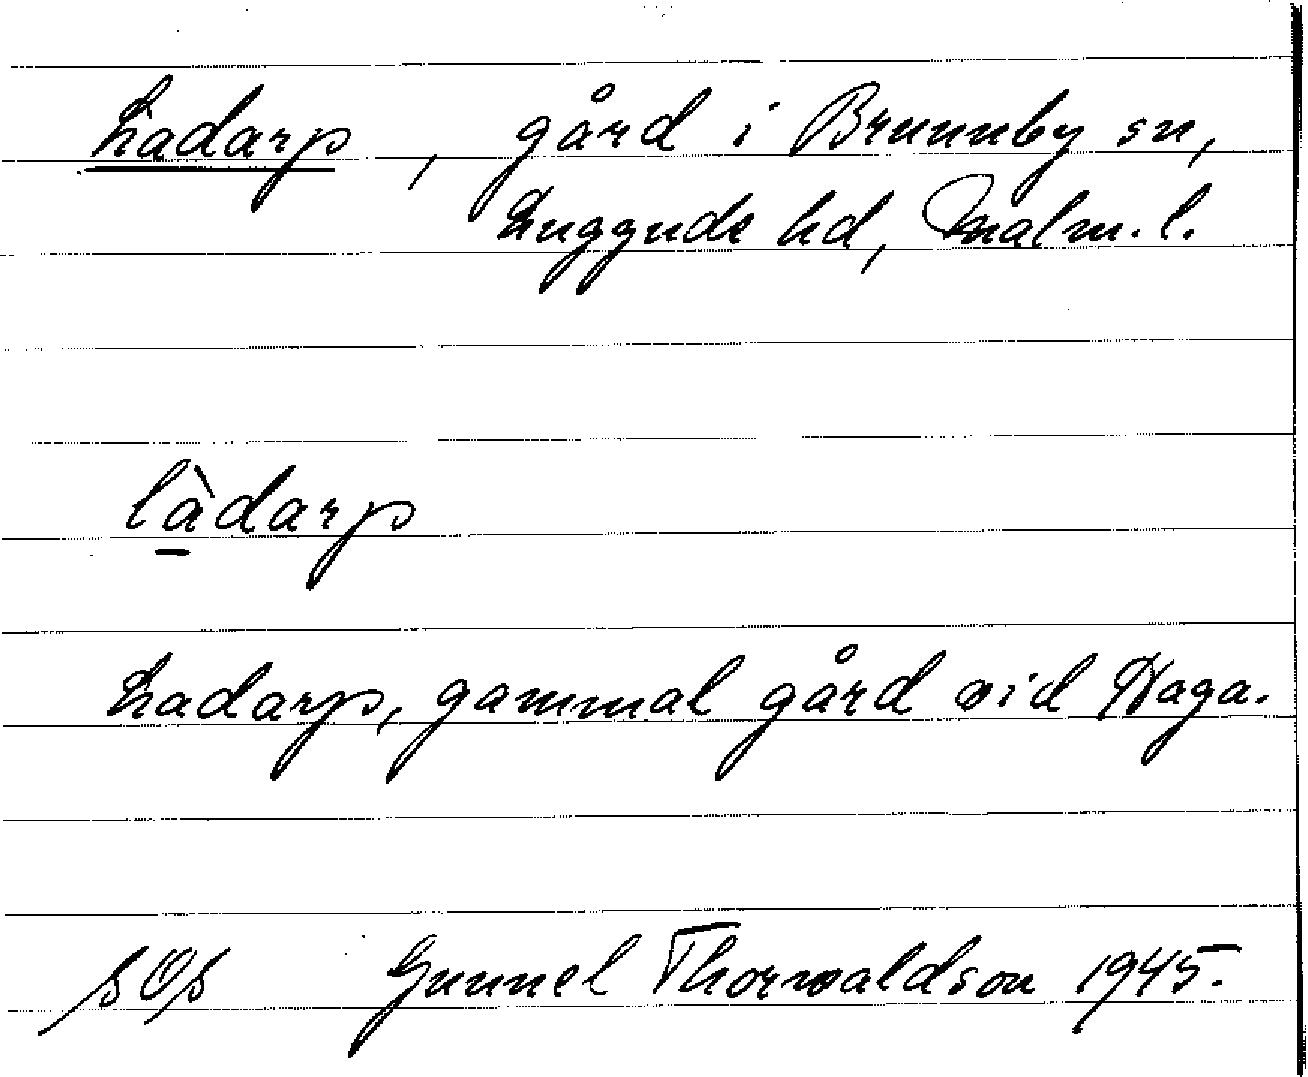 Ladarp, gård i Brunnby sn,
Luggude hd, Malm. l.
làdarp
Ladarp, gammal gård vid Haga.
SOS Gunnel Thorwaldson 1945.